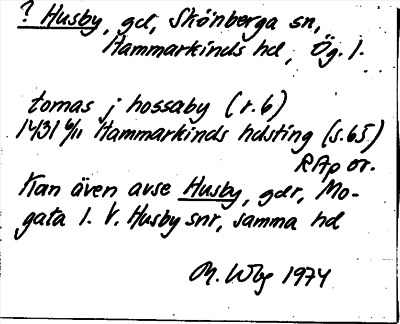 ? Husby, gd, Skönberga sn,
Hammarkinds hd, Ög. l.
tomas j hossaby (r. 6)
1431 6/11 Hammarkinds hdsting (s. 65)
RAp or.
Kan även avse Husby, gdr, Mo-
gata l. V. Husby snr, samma hd
M. Wbg 1974